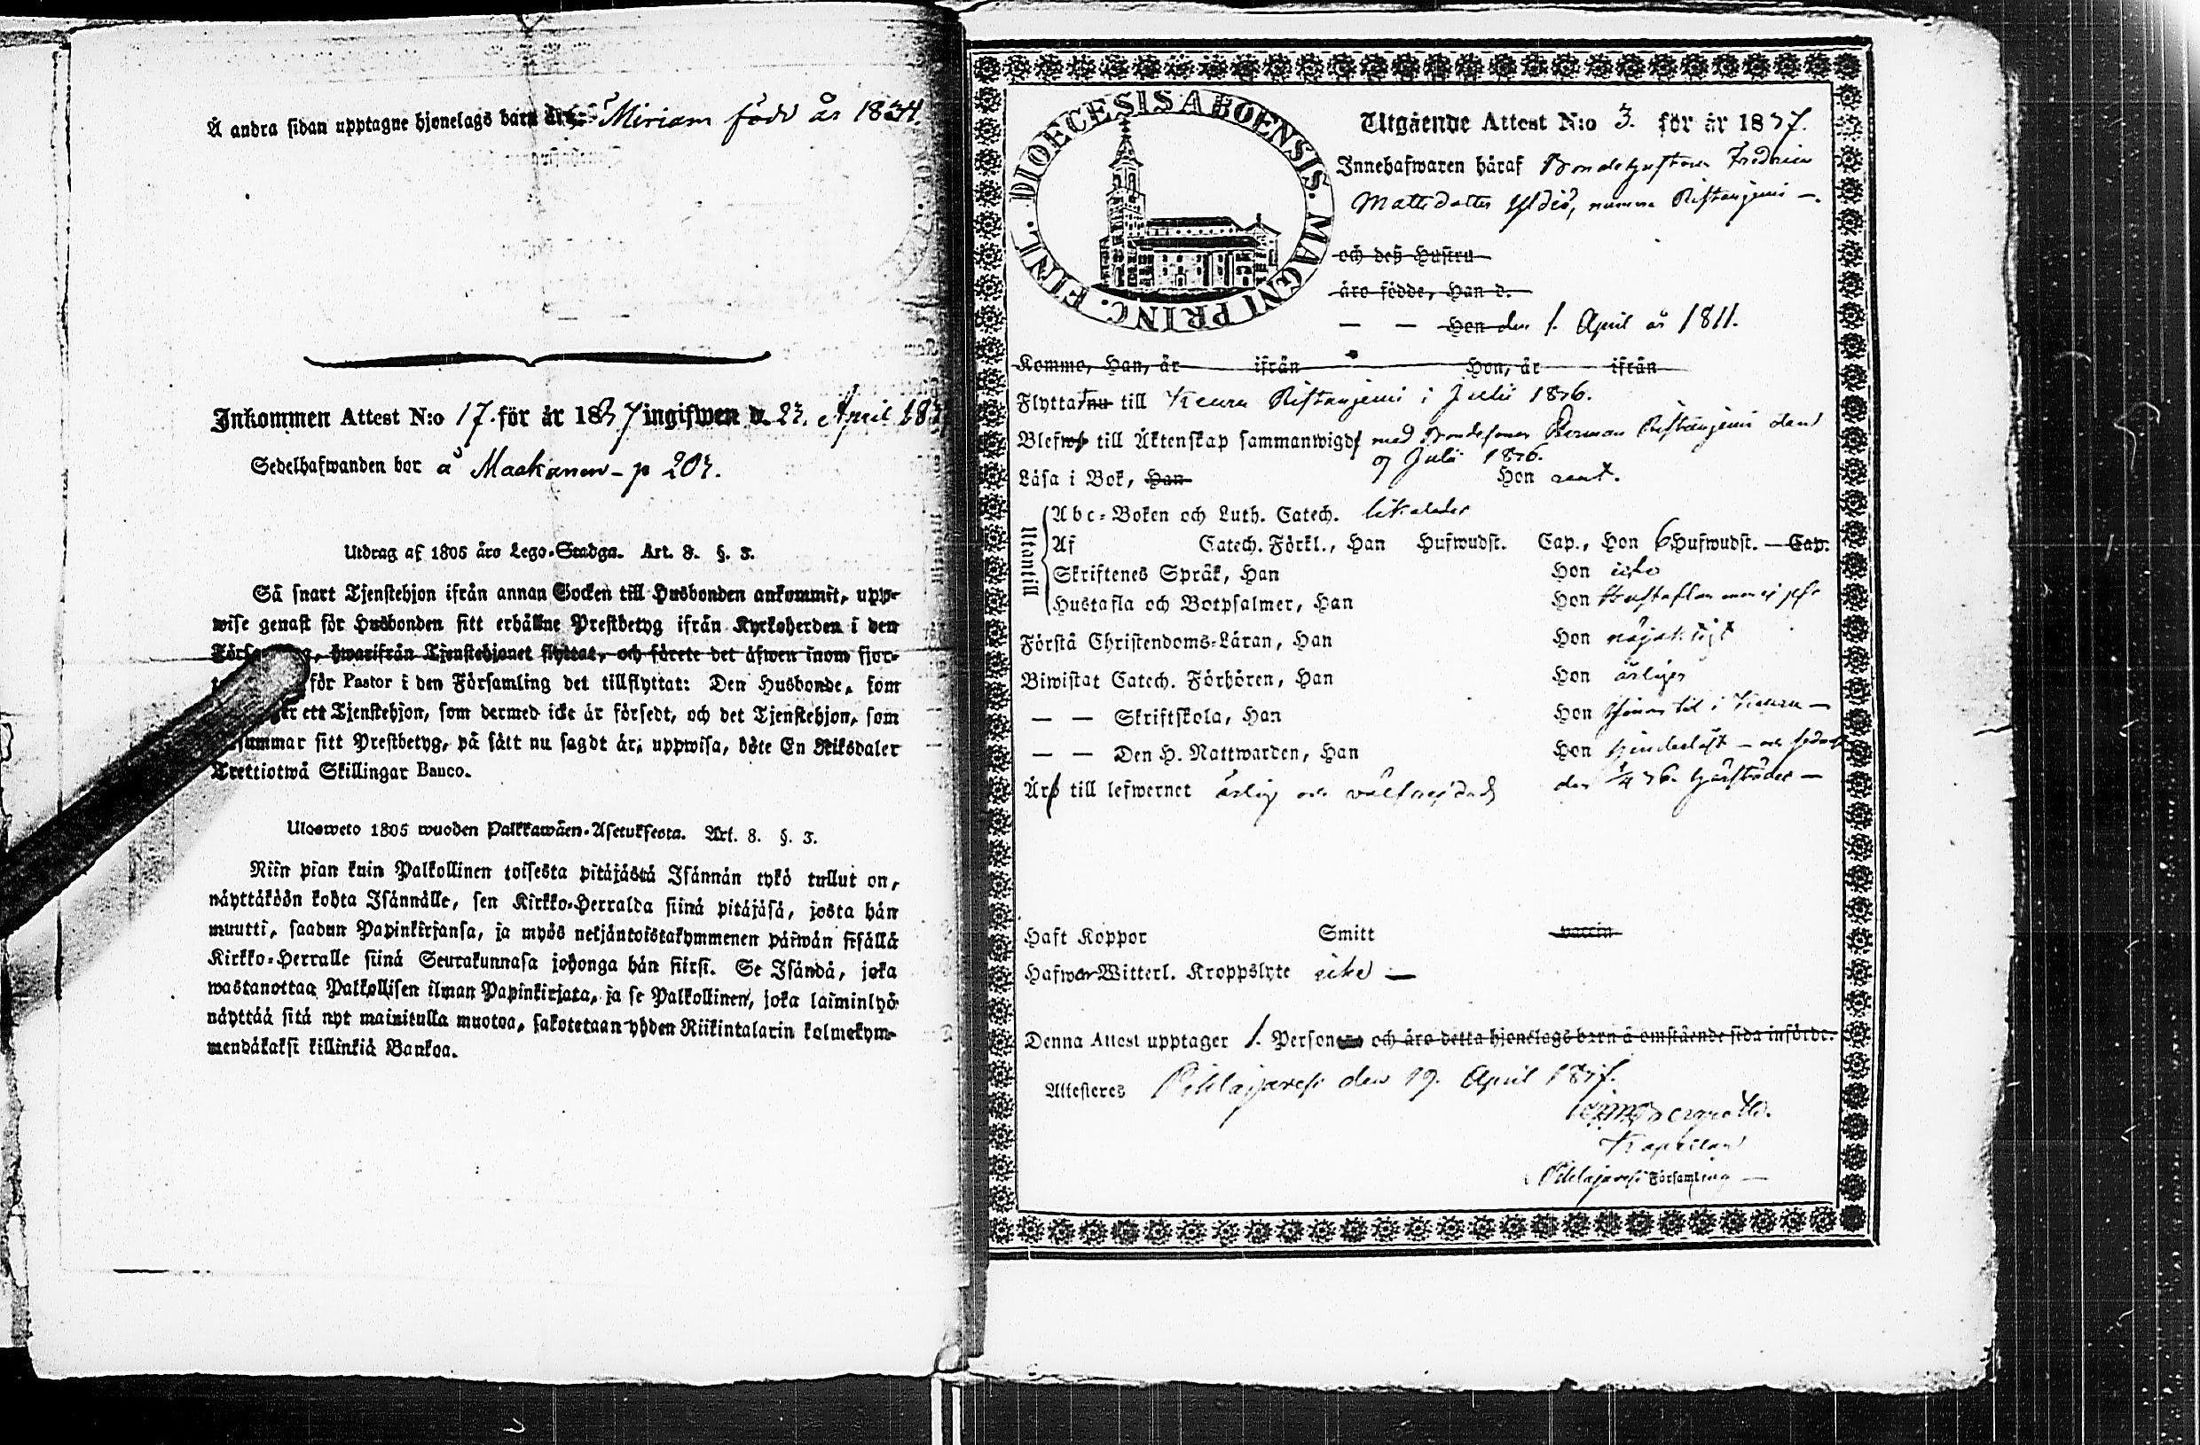 Å andra sidan upptagne hjonelags barn är: Miriam född år 1834.
Inkommen Attest N:o 17. för år 1837 ingifwen d. 23. April 183
Sedelhafwanden bor å Maakanen - p 203.
Utdrag af 1805 års Lego-Stadga. Art. 8. §. 3.
Så snart Tjenstehjon ifrån annan Socken till Husbonden ankommit, upp-
wise genast för Husbonden sitt erhållne Prestbetyg ifrån Kyrkoherden i den
hwarifrån Tjenstehjonet flyttat, och förete det äfwen inom fjor-
för Pastor i den Församling det tillflyttat: Den Husbonde, som
ett Tjenstehjon, som dermed icke är försedt, och det Tjenstehjon, som
summar sitt Prestbetyg, på sätt nu sagdt är, uppwisa, böte En Riksdaler
Trettiotwå Skillingar Banco.
Ulosweto 1805 wuoden Palkkawäen-Asetuksesta. Art. 8. §. 3.
Niin pian kuin Palkollinen toisesta pitäjästä Isännän tykö tullut on,
näyttäköön kohta Isännälle, sen Kirkko-Herralda siinä pitäjäsä, josta hän
muutti, saadun Papinkirjansa, ja myös neljäntoistakymmenen päiwän sisällä
Kirkko-Herralle siinä Seurakunnasa johonga hän siirsi. Se Isändä, joka
wastanottaa Palkollisen ilman Papinkirjata, ja se Palkollinen, joka laiminlyö
näyttää sitä nyt mainitulla muotoa, sakotetaan yhden Riikintalarin kolmekym-
mendäkaksi killinkiä Bankoa.
DIOECESIS ABOENSIS. MAGNI PRINC. FINL.
Utgående Attest N:o 3. för år 1837.
Innehafwaren häraf Bondehustrun
Mattsdotter numera Ristanjemi -.
och deß Hustru
äro födde, Han d.
— — Hon den 1. April år 1811.
Komne, Han, år ifrån Hon, år ifrån
Flyttat till Keuru Ristanjemi i Julii 1836.
Blefwo till Äktenskap sammanwigde med Bondesonen Herman Ristanjemi
Julii 1836.
Läsa i Bok, Han Hon rent.
Utantill
Abc-Boken och Luth. Catech. likaledes
Af Catech. Förkl., Han Hufwudst. Cap., Hon 6 Hufwudst. — Cap.
Skriftenes Språk, Han Hon icke
Hustafla och Botpsalmer, Han Hon Hustaflan
Förstå Christendoms-Läran, Han Hon nöjaktigt
Biwistat Catech. Förhören, Han Hon årligen
— — Skriftskola, Han Hon
— — Den H. Nattwarden, Han Hon
Äro till lefwernet ärlig och wälfrejdad
Haft Koppor Smitt vaccin
Hafwa Witterl. Kroppslyte icke —
Denna Attest upptager 1. Personer och äro detta hjonelags barn å omstående sida införde.
Attesteres Pihlajavesi den 19. April 1837.
Kapellan
Pihlajavesi Församling —